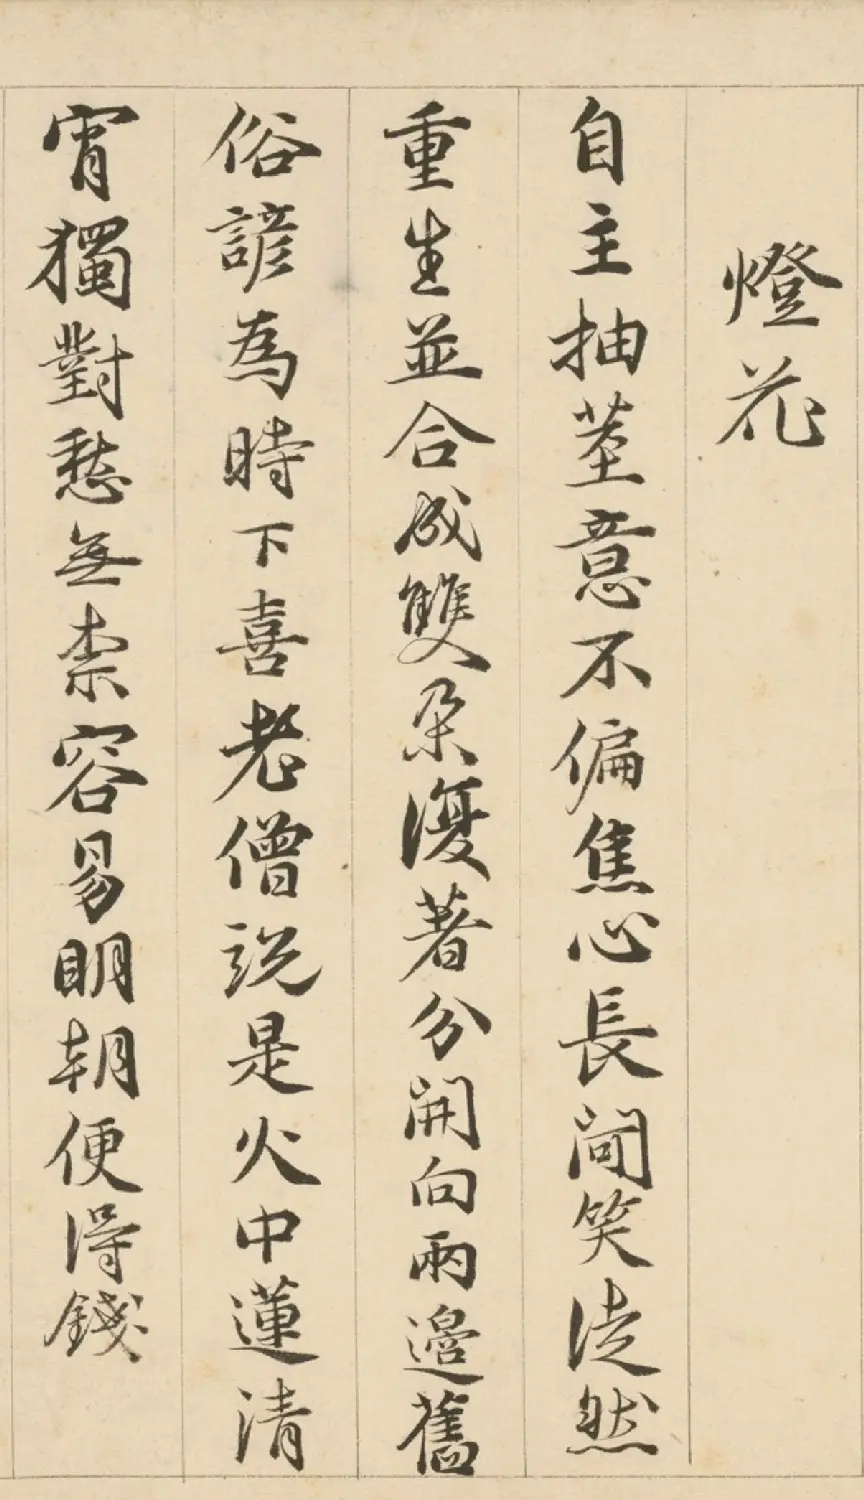 燈花
自主抽莖意不偏焦心長間笑徒然
重生並合成雙朵復著分開向兩邊舊
俗諺為時下喜老僧説是火中蓮清
宵獨對愁無柰容易明朝便得錢